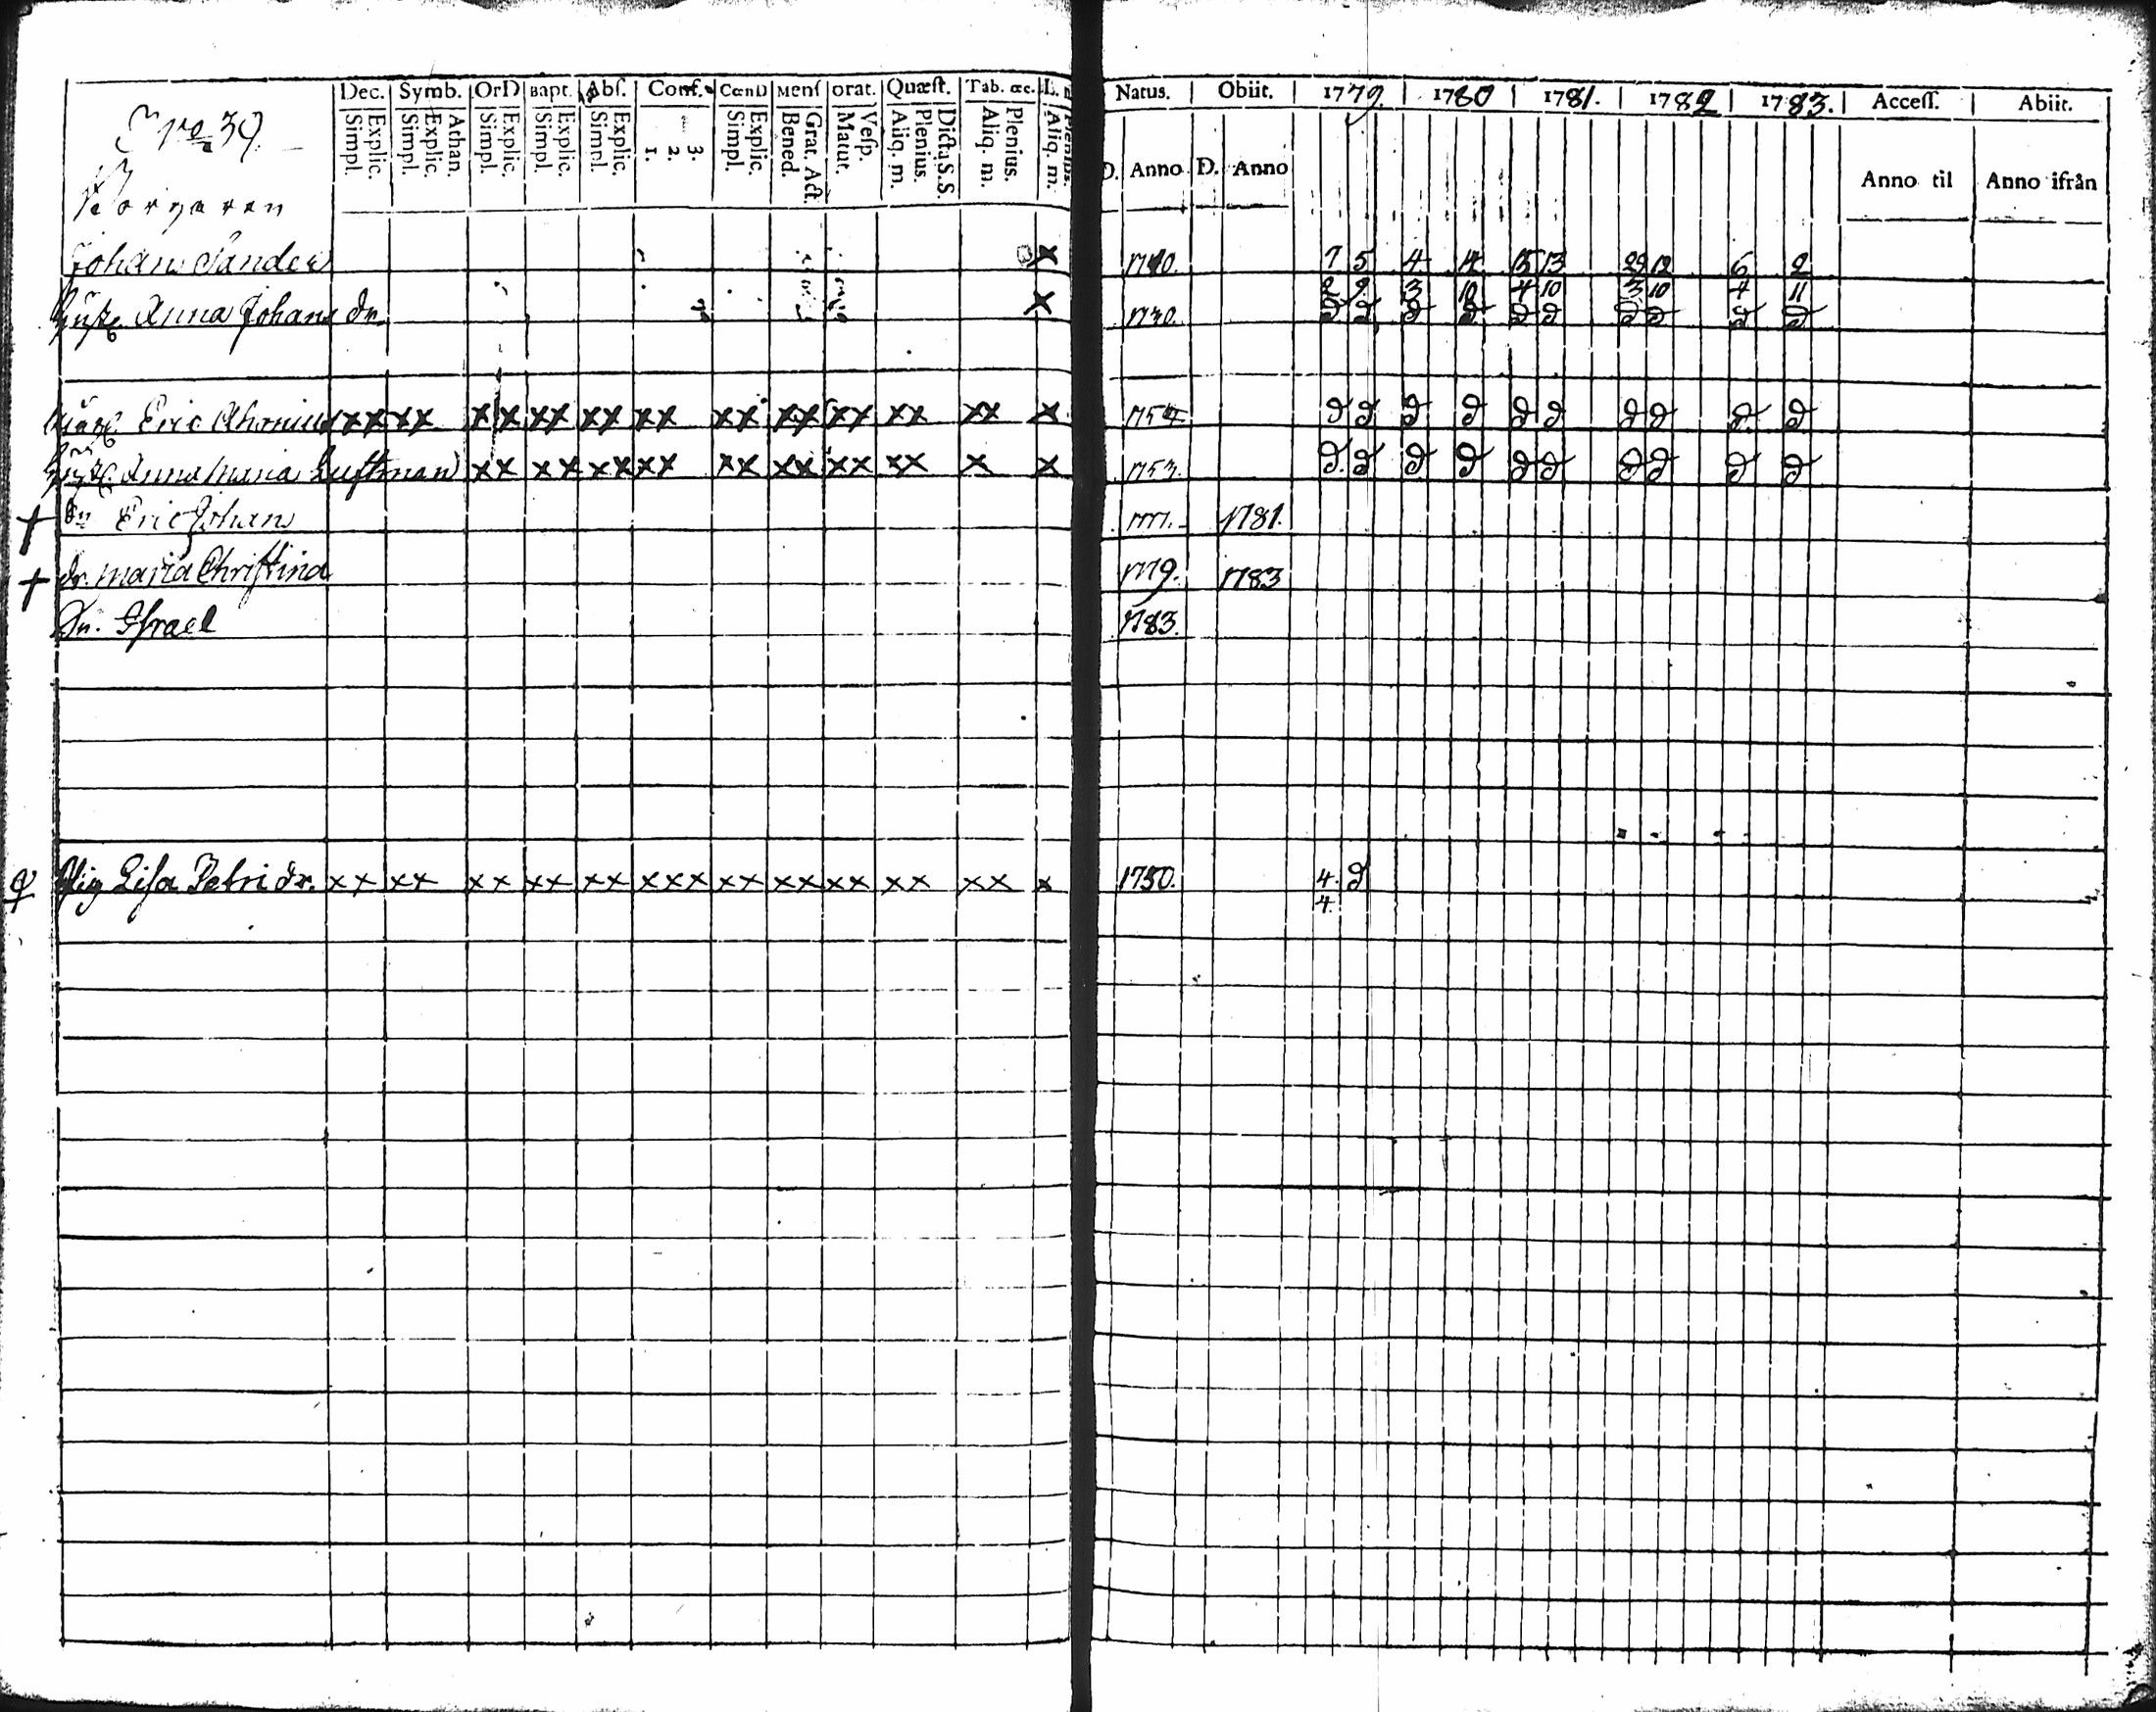 Dec. Symb. OrD Bapt. Abſ. Conf. CœnD Menſ orat. Quæſt. Tab. œc. L. Natus. Obiit. 1779. 1780 1781. 1782 1783. Acceſſ. Abiit.
Explic. Simpl. Athan. Explic. Simpl. Explic. Simpl. Explic. Simpl. Explic. Simpl. 3. 2. 1. Explic. Simpl. Grat. Act. Bened. Veſp. Matut. Dicta S.S. Plenius. Aliq. m. Plenius. Aliq. m. Plenius. Aliq. m. D. Anno D. Anno Anno til Anno ifrån
No 39.
Borgaren
Johan Sander x 7 5 4 14 15 13 29 12 6 2
2 9 3 10 4 10 3 10 4 11
Hust. Anna Johans dr. x 1730. D D D D D D D D D D
Eric xx xx xx xx xx xx xx xx xx xx xx x 1754 D D D D D D D D D D
Hust. Anna Maria Luftman xx xx xx xx xx xx xx xx x x 1753. D. D D D D D D D D D
† Sn Eric Johan 1777. 1781.
† dr. Maria Chriſtina 1779. 1783
Sn. Iſrael 1783.
Pig Liſa Petri dr. xx xx xx xx xx xxx xx xx xx xx xx x 1750. 4. D
4.